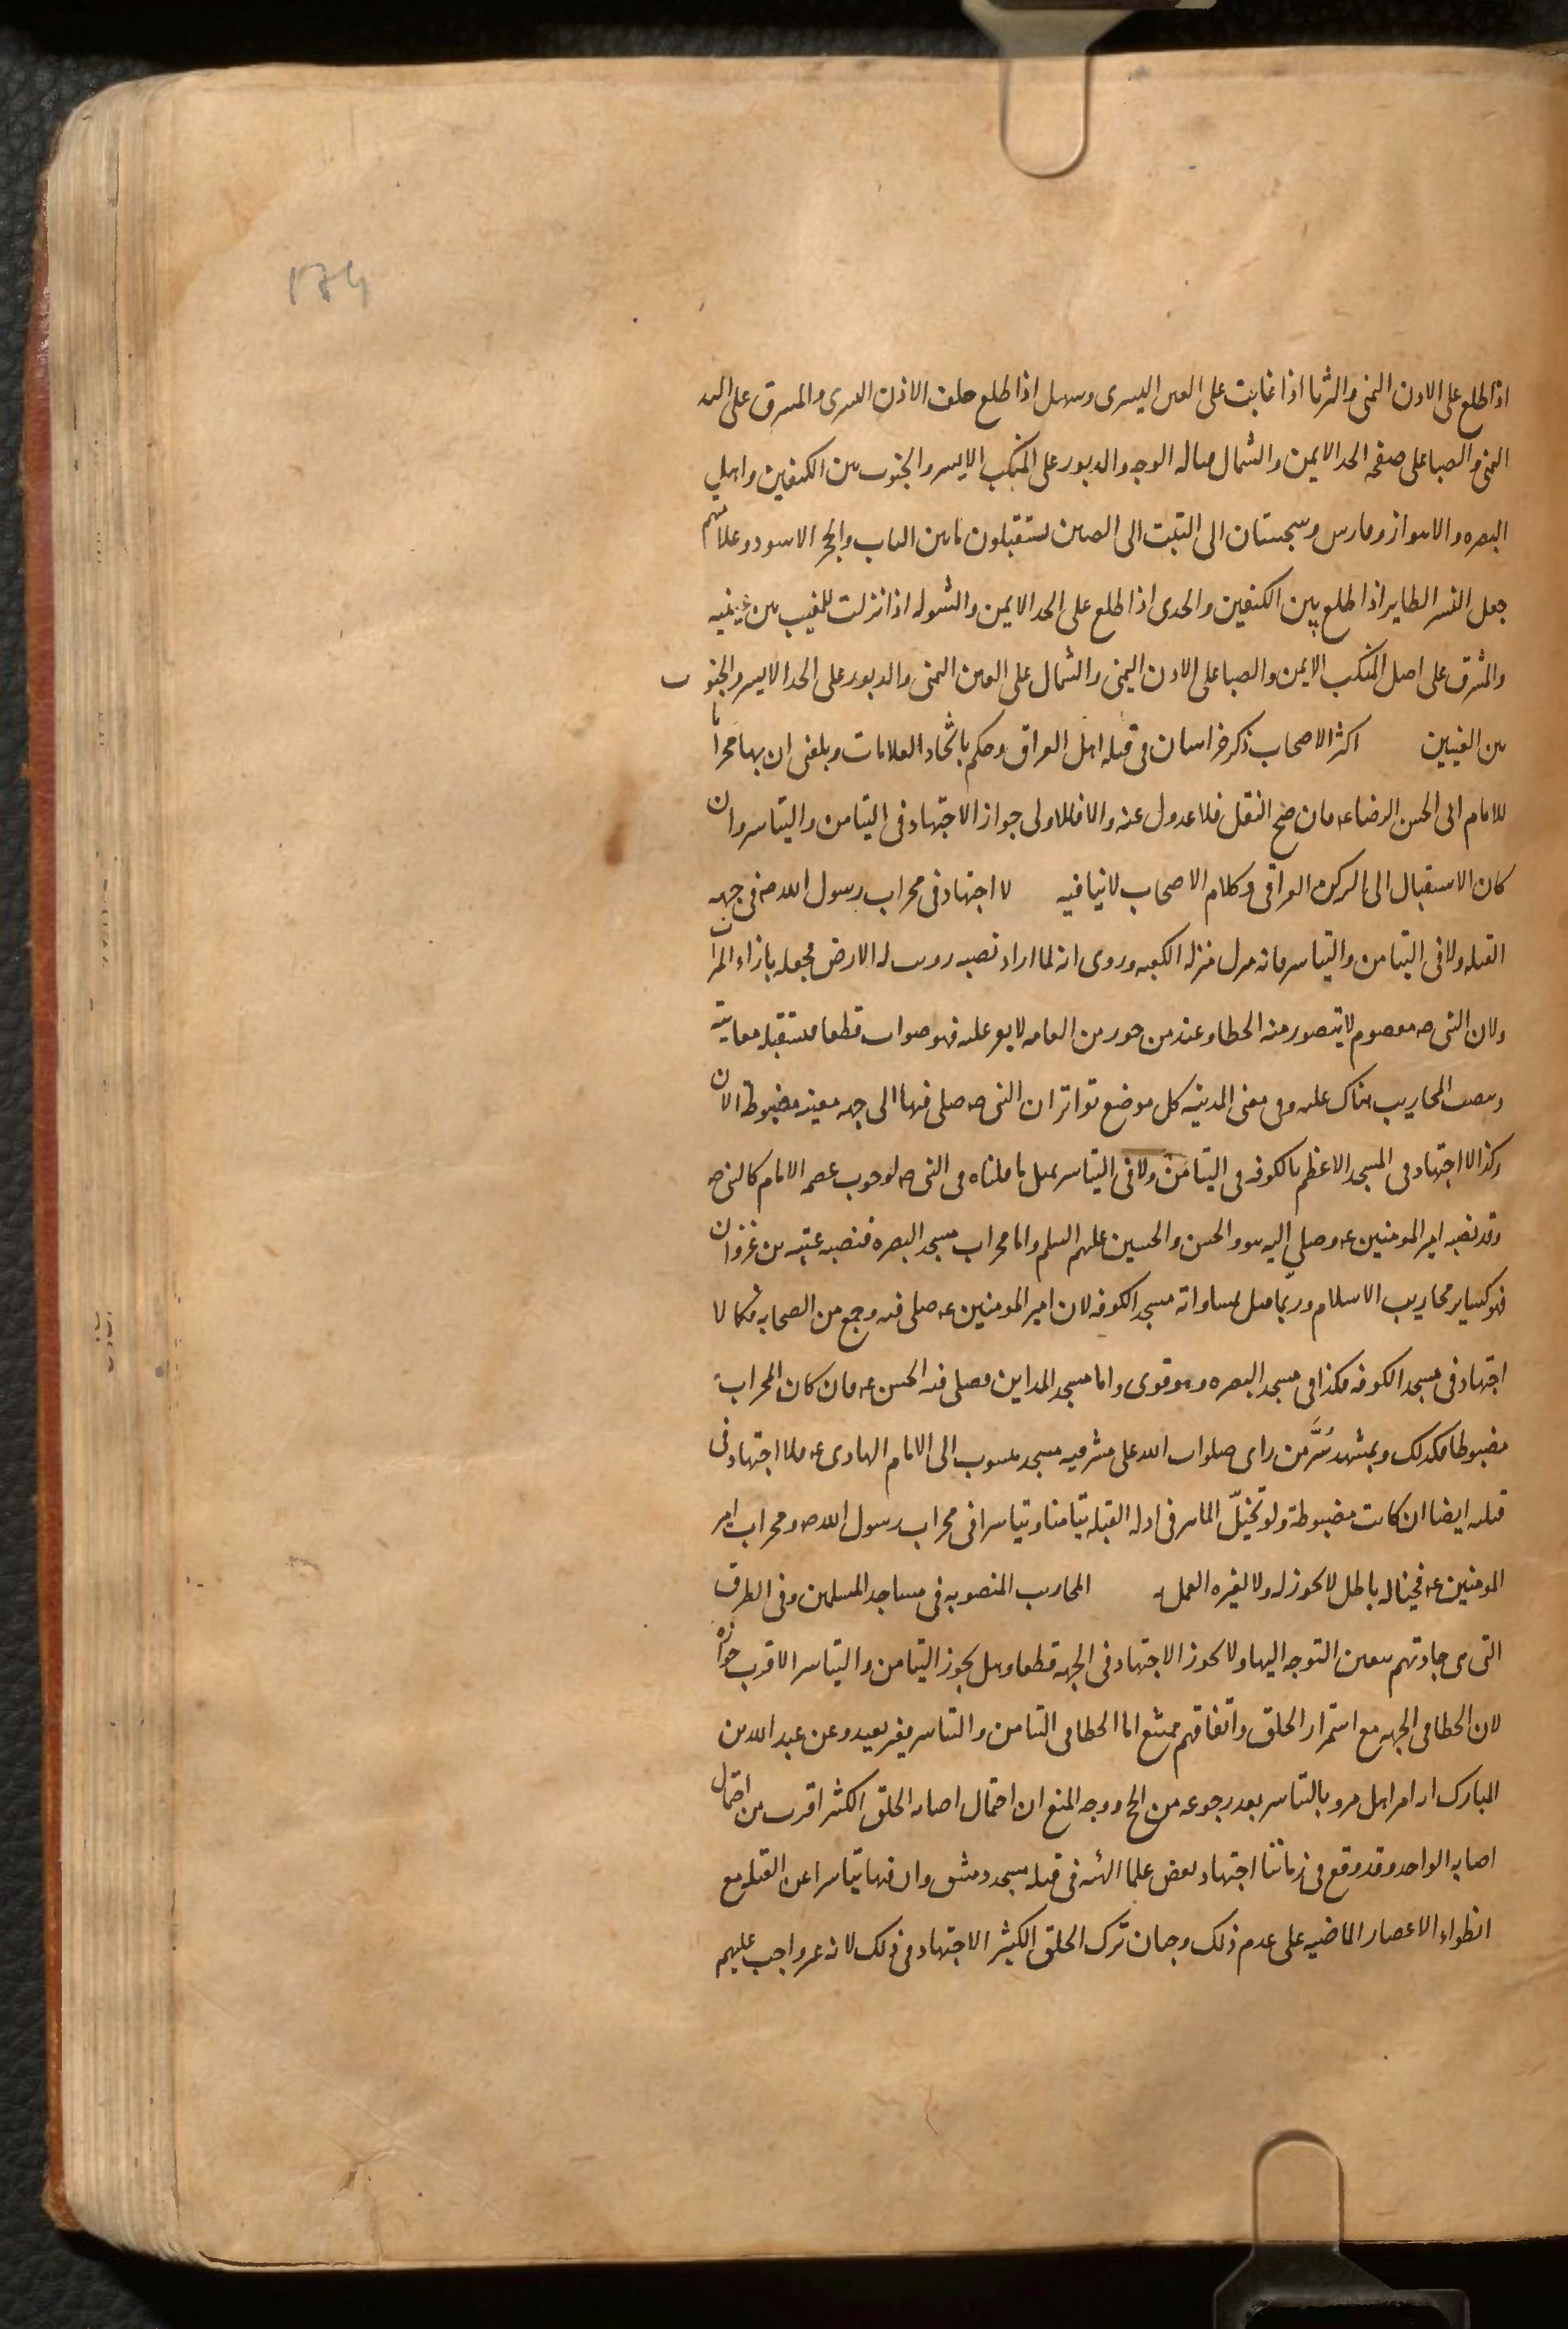 ١٣٩
اذا طلع على الاذن اليمنى والثريا اذا غابت على العين اليسرى وسهيل اذا طلع خلف الاذن اليسرى والمشرق على اليد
اليمنى والصبا على صفحه الخد الايمن والشمال مماله الوجه والدبور على المنكب الايسر والجنوب بين الكتفين واهل
البصره والاهواز وفارس وسجستان الى التبت الى الصين يستقبلون ما بين الباب والحجر الاسود وعلامتهم
جعل النسر الطاير اذا طلع بين الكتفين والجدى اذا طلع على الخد الايمن والشوله اذا نزلت للمغيب بين عينيه
والمشرق على اصل المنكب الايمن والصبا على الاذن اليمنى والشمال على العين اليمنى والدبور على الخد الايسر والجنوب
بين العينين اكثر الاصحاب ذكر خراسان فى قبله اهل العراق وحكم باتحاد العلامات وبلغنى ان بها محرابا
للامام ابى الحسن الرضا ع فان صح النقل فلا عدول عنه والا فالاولى جواز الاجتهاد فى التيامن والتياسر وان
كان الاستقبال الى الركن العراقى وكلام الاصحاب لا ينافيه لا اجتهاد فى محراب رسول الله ص فى جهه
القبله ولا فى التيامن والتياسر فانه منزل منزله الكعبه وروى انه لما اراد نصبه زويت له الارض فجعله بازاء الميزاب
ولان النبى ص معصوم لا يتصور منه الخطا وعند من جوزه من العامه لا يقر عليه فهو صواب قطعا فمستقبله معاينة
وينصب المحاريب هناك عليه وفى معنى المدينه كل موضع تواتر ان النبى ص صلى فيها الى جهه معينه مضبوطة الان
وكذا لا اجتهاد فى المسجد الاعظم بالكوفه فى التيامن ولا فى التياسر بمثل ما قلناه فى النبى ص لوجوب عصمه الامام كالنبى ص
وقد نصبه امير المومنين ع وصلى اليه هو والحسن والحسين عليهم السلم واما محراب مسجد البصره فنصبه عتبه بن غزوان
فهو كساير محاريب الاسلام وربما قيل بمساواته مسجد الكوفه لان امير المومنين ع صلى فيه وجمع من الصحابه فكما لا
اجتهاد فى مسجد الكوفه فكذا فى مسجد البصره وهو قوى واما مسجد المداين فصلى فيه الحسن ع فان كان المحراب
مضبوطا فكذلك وبمشهد سُرَّ من راى صلوات الله على مشرفيه مسجد منسوب الى الامام الهادى ع فلا اجتهاد فى
قبلته ايضا ان كانت مضبوطة ولو تخيّل الماهر فى ادله القبله تيامنا وتياسرا فى محراب رسول الله ص ومحراب امير
المومنين ع فخياله باطل لا يجوز له ولا لغيره العمل به المحاريب المنصوبه فى مساجد المسلمين وفى الطرق
التى هى جادتهم يتعين التوجه اليها ولا يجوز الاجتهاد فى الجهه قطعا وهل يجوز التيامن والتياسر الاقرب جوازه
لان الخطا فى الجهه مع استمرار الخلق واتفاقهم ممتنع اما الخطا فى التيامن والتياسر فغير بعيد وعن عبد الله بن
المبارك انه امر اهل مرو بالتياسر بعد رجوعه من الحج ووجه المنع ان احتمال اصابه الخلق الكثير اقرب من احتمال
اصابه الواحد وقد وقع فى زماننا اجتهاد بعض علما الهيئه فى قبله مسجد دمشق وان فيها تياسرا عن القبله مع
انطواء الاعصار الماضيه على عدم ذلك وجاز ترك الخلق الكثير الاجتهاد فى ذلك لانه غير واجب عليهم